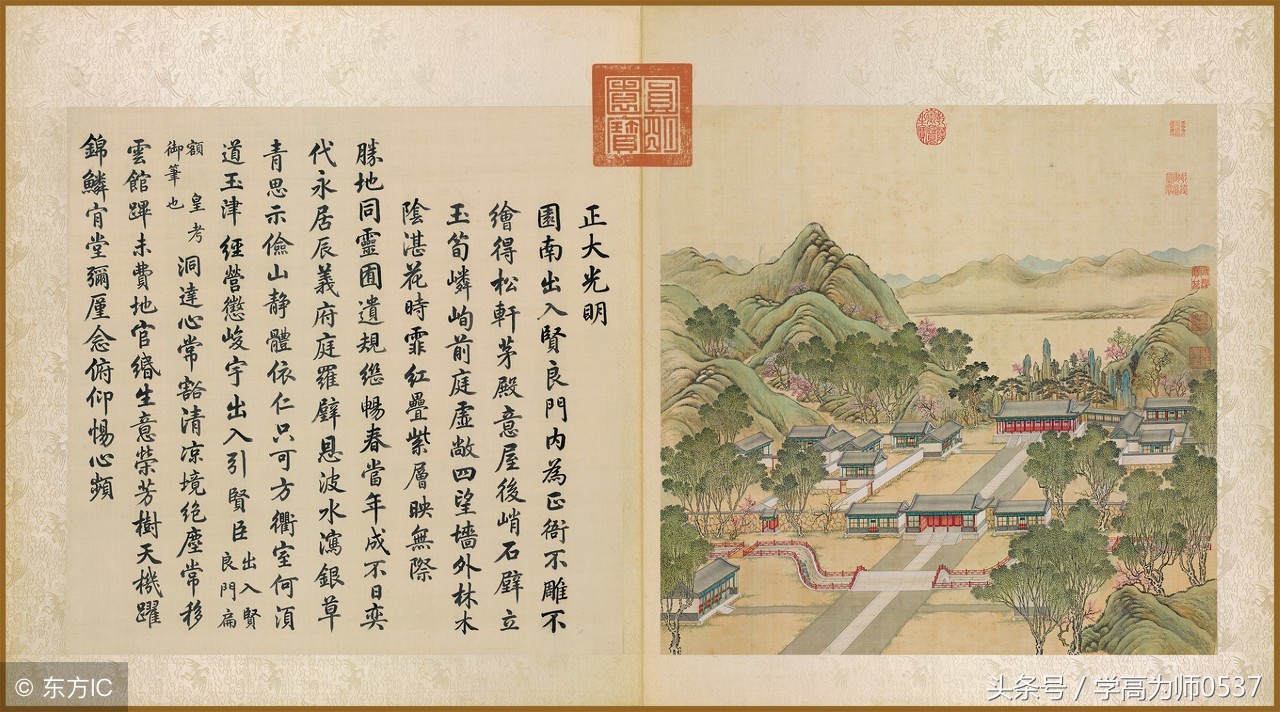 正大光明
園南出入賢良門内為正衙不雕不
繪得松軒茅殿意屋後峭石壁立
玉筍嶙峋前庭虛敞四望墻外林木
陰湛花時霏紅疊紫層映無際
勝地同靈囿遺規継暢春當年成不日奕
代永居辰義府庭羅壁恩波水瀉銀草
青思示儉山靜體依仁只可方衢室何須
道玉津經營懲峻宇出入引賢臣出入賢良門扁
額皇考御筆也洞達心常豁清涼境絶塵常移
雲館蹕未費地官緡生意榮芳樹天機躍
錦鱗肎堂彌厪念俯仰惕心頻
© 东方IC
头条号 / 学高为师0537